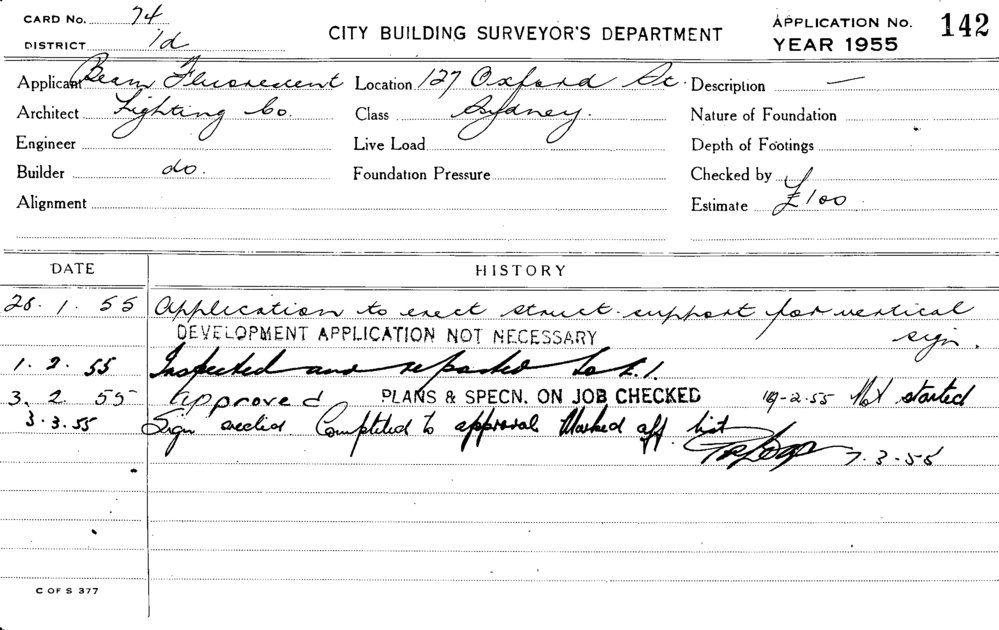 CARD No. 74
DISTRICT 1d
CITY BUILDING SURVEYOR'S DEPARTMENT
APPLICATION No. 142
YEAR 1955
Applicant Beam Fluorescent Location 127 Oxford St. Description —
Architect Lighting Co. Class Sydney. Nature of Foundation
Engineer Live Load Depth of Footings
Builder do. Foundation Pressure Checked by
Alignment Estimate £100
DATE HISTORY
28. 1. 55 Application to erect struct. support for vertical
sign.
DEVELOPMENT APPLICATION NOT NECESSARY
1. 2. 55 Inspected and reported to
3. 2. 55 Approved PLANS & SPECN. ON JOB CHECKED -2-55 Not started
3.3.55 Sign erected Completed to approval Marked off list
7.3.55
C OF S 377